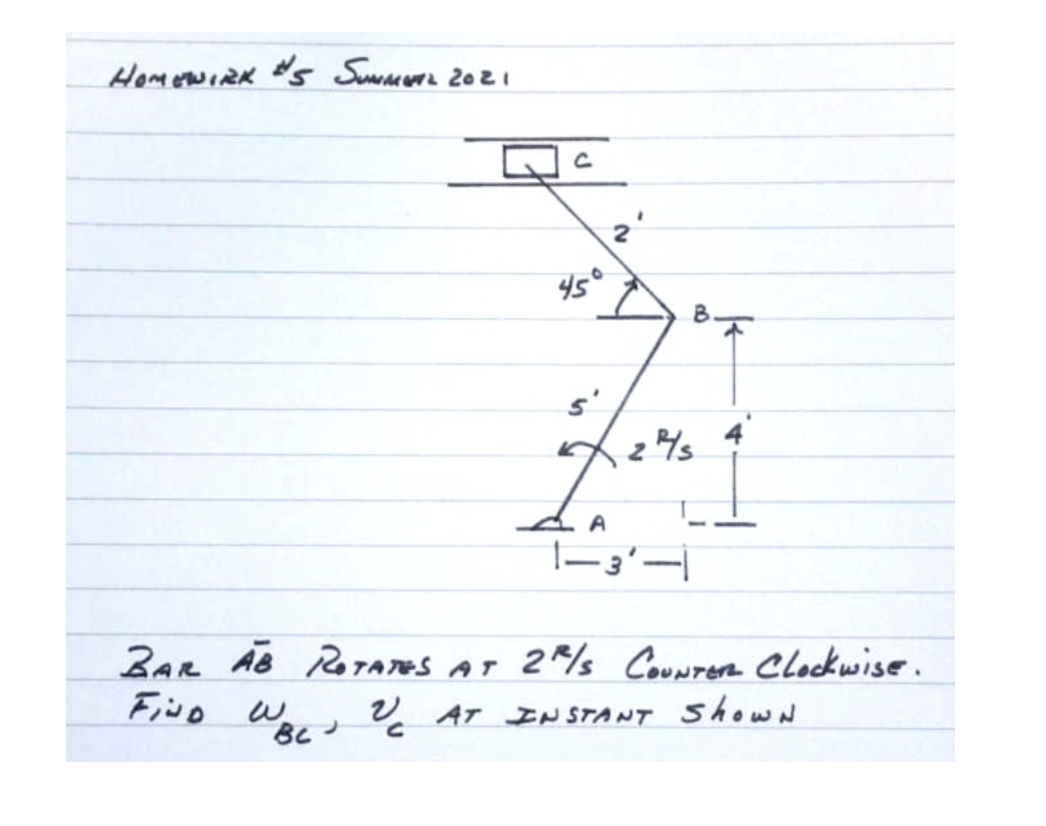 HOMEWORK #5 SUMMER 2021
C
2'
45°
B
5'
2 R/S
4'
A
3'
BAR AB ROTATES AT 2 R/S COUNTER CLOCKWISE.
FIND ω_BC, V_C AT INSTANT SHOWN